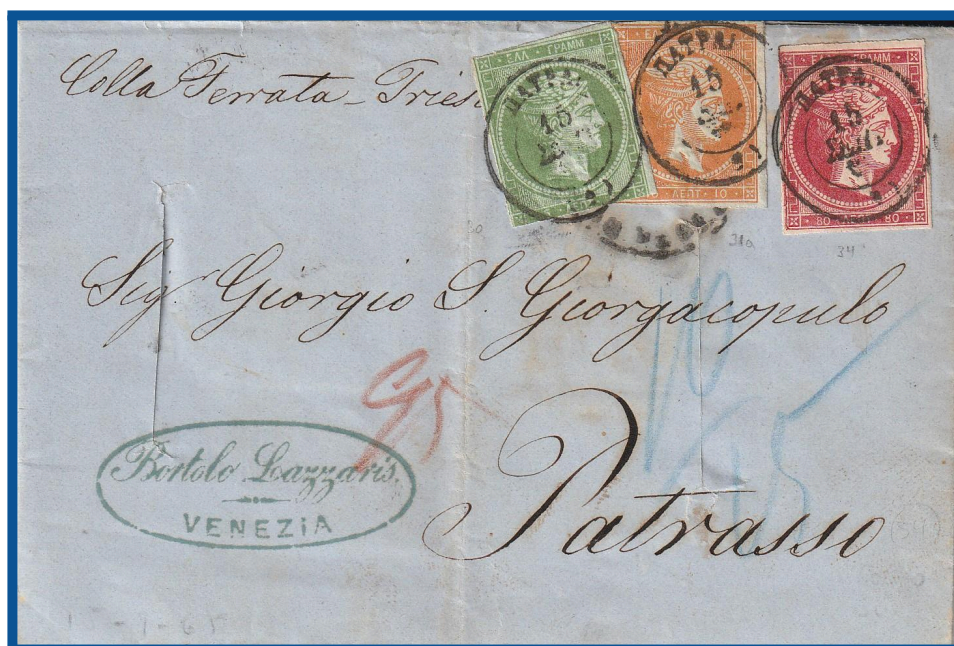 Colla Ferrata - Tries
ΕΛΛ ΓΡΑΜΜ
ΠΑΤΡΑΙ
15
ΕΛΛ
ΠΑΤΡΑΙ
15
ΛΕΠΤ 10
ΓΡΑΜΜ
ΠΑΤΡΑΙ
15
ΣΕΠΤ.
80 80
31a
34
Sig. Giorgio S. Giorgacopulo
95
Bortolo Lazzaris.
VENEZIA
Patrasso